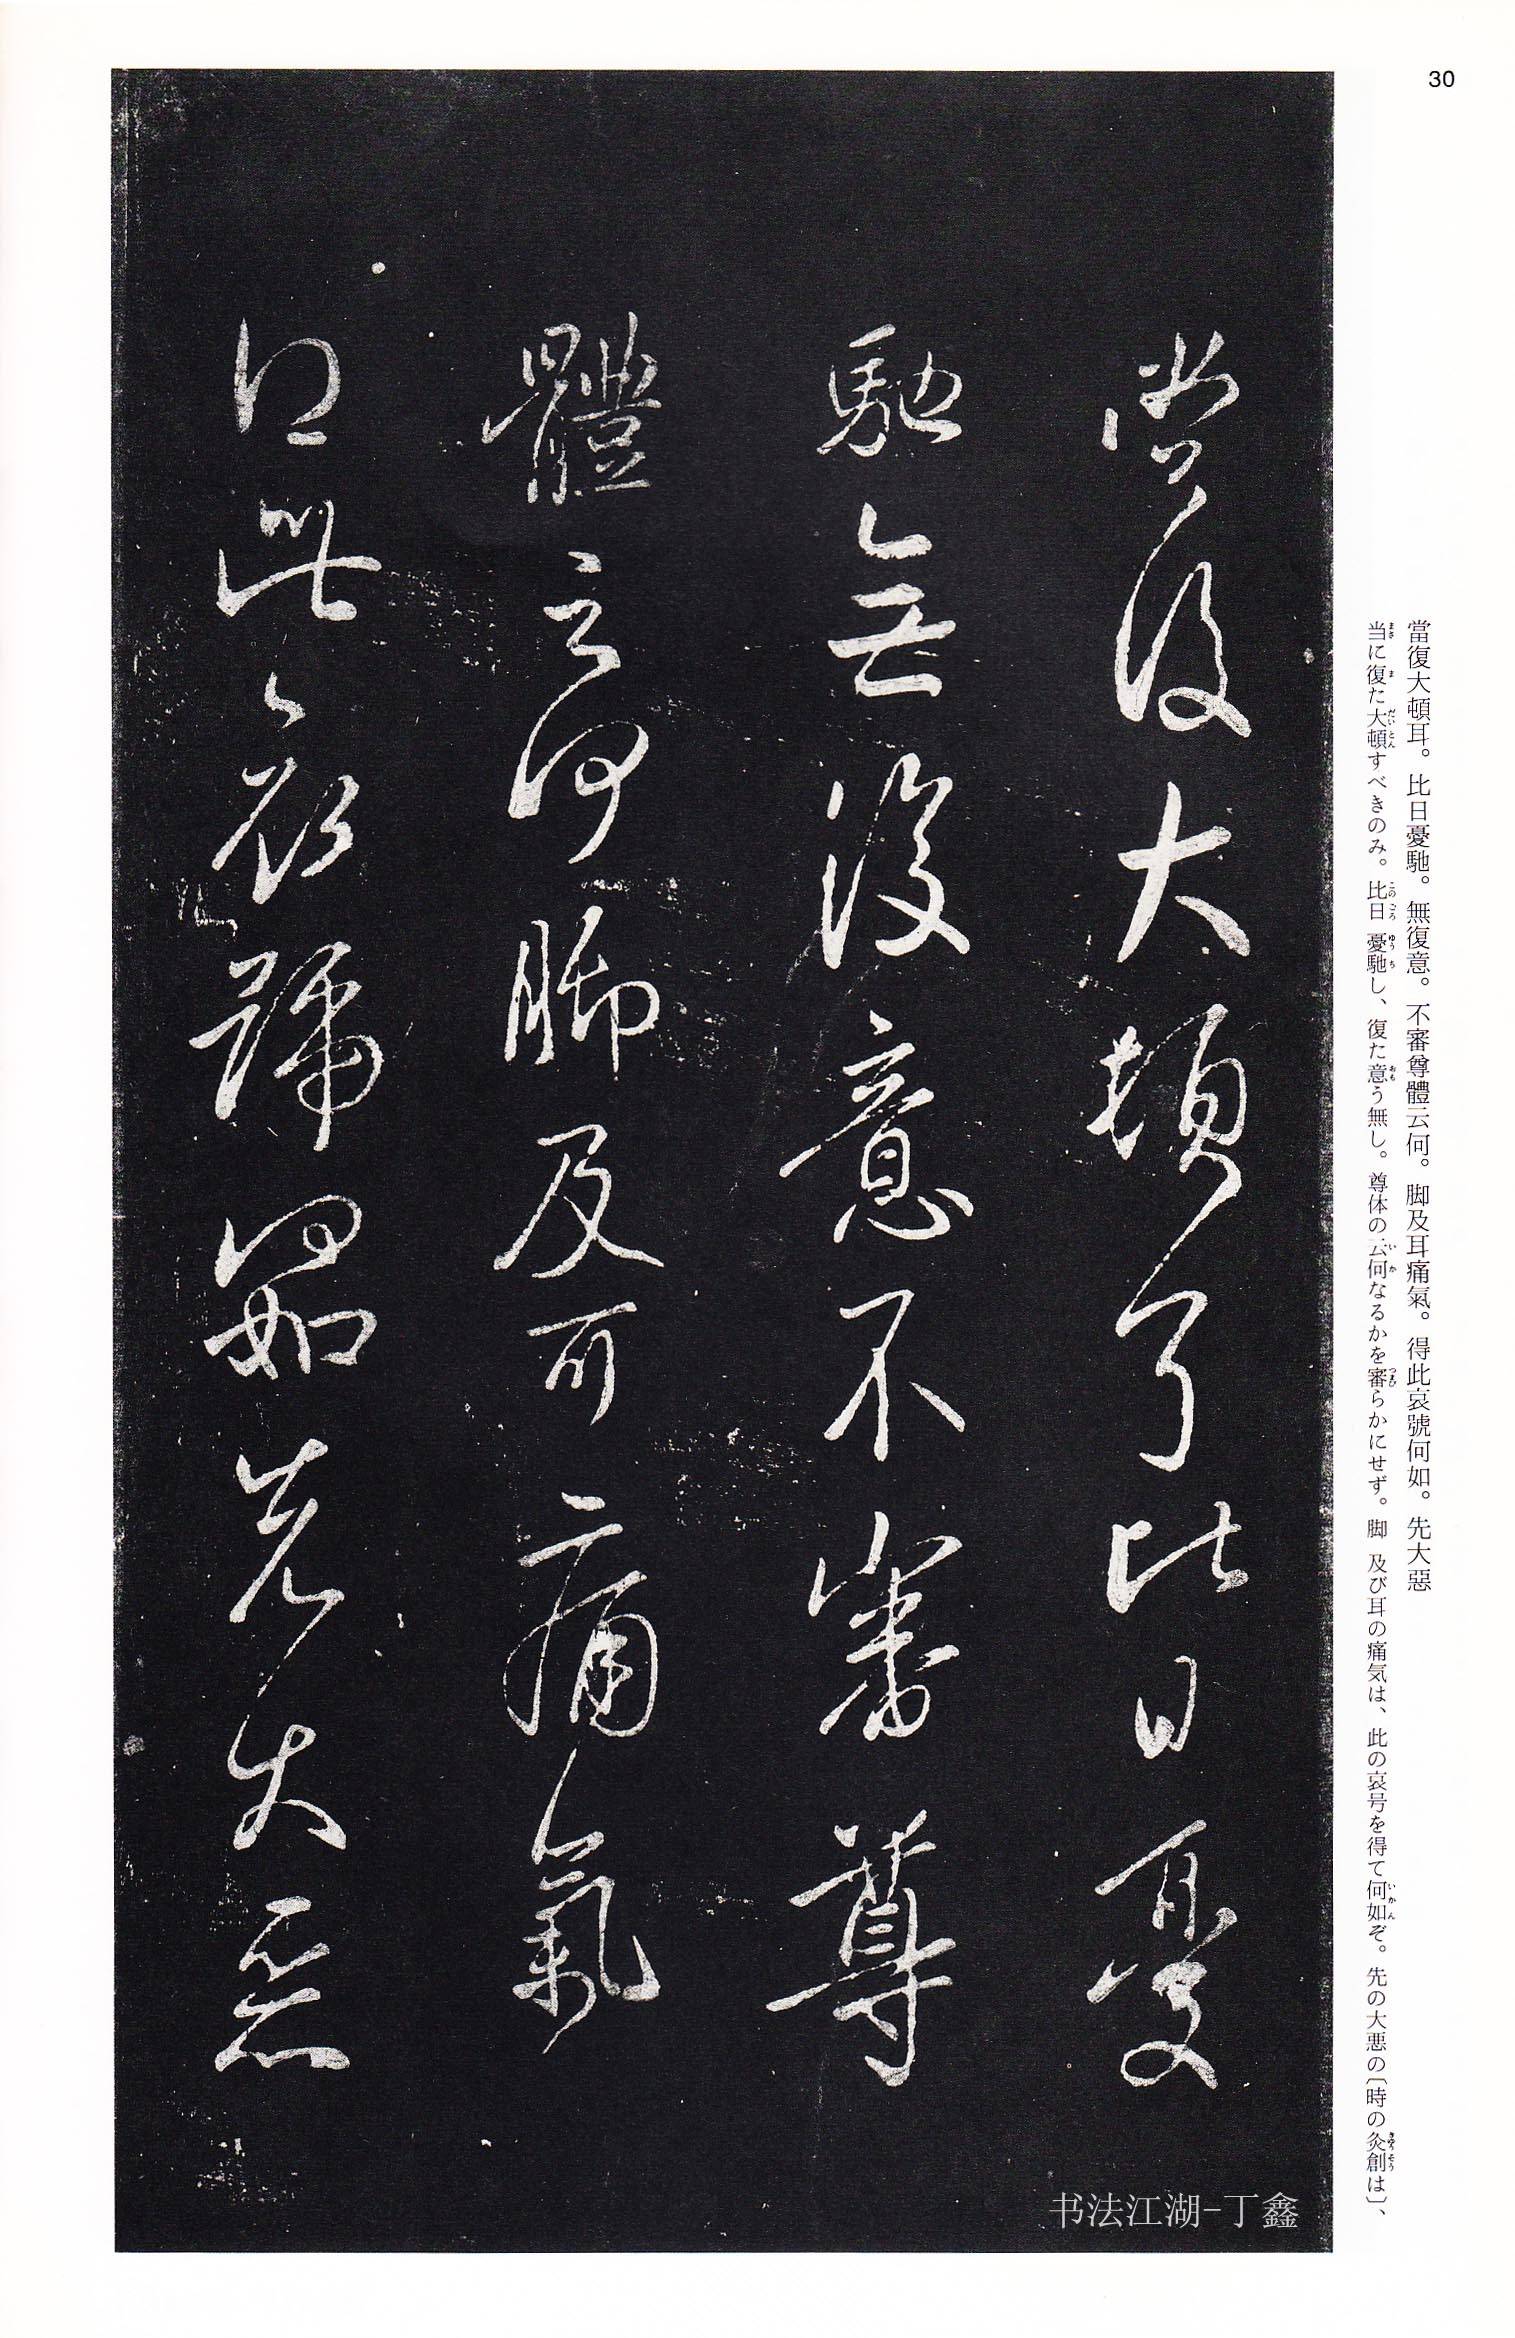 30
當復大頓耳。比日憂馳。無復意。不審尊體云何。脚及耳痛氣。得此哀號何如。先大惡
当に復た大頓すべきのみ。比日憂馳し、復た意う無し。尊体の云何なるかを審らかにせず。脚及び耳の痛気は、此の哀号を得て何如ぞ。先の大悪の〔時の灸創は〕、
當復大頓耳比日憂
馳無復意不審尊
體云何脚及耳痛氣
得此哀號何如先大惡
书法江湖-丁鑫